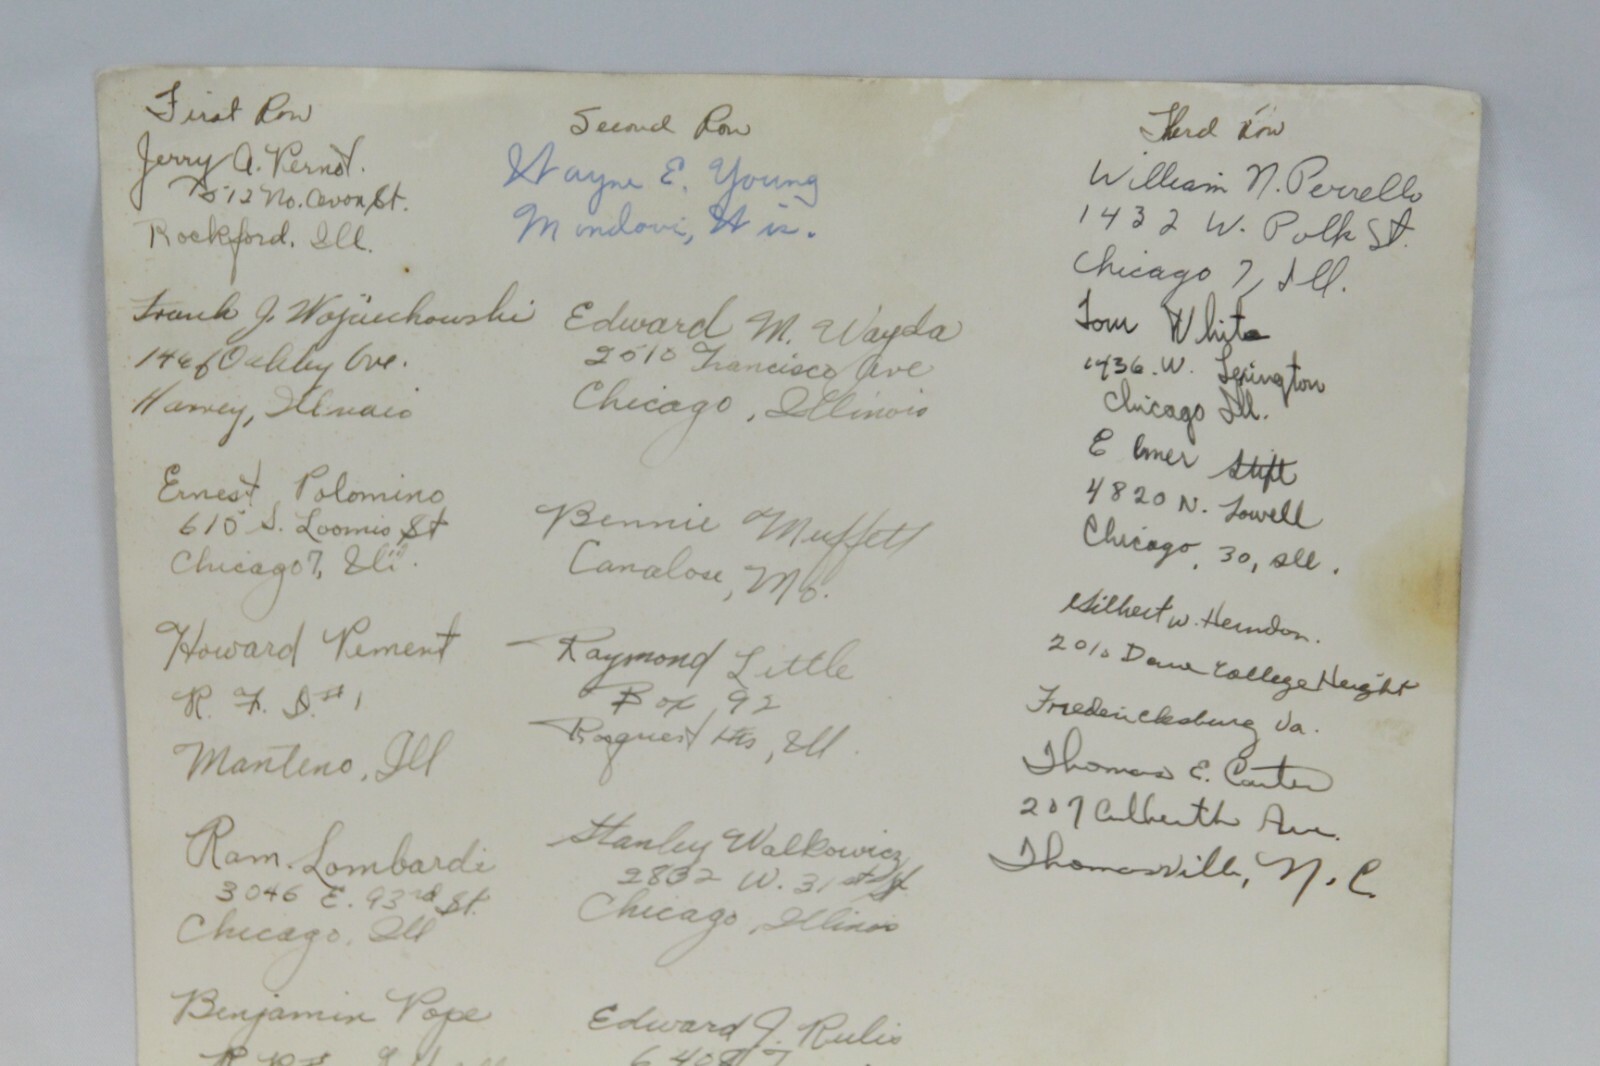 First Row
Jerry A. Pernot.
512 No. Avon St.
Rockford. Ill.
Frank J. Wojciechowski
Oakley Ave.
Harvey, Illinois
Ernest Polomino
615 S. Loomis St
Chicago 7, Ill.
Howard Pement
R. F. D. #1
Manteno, Ill
Ram. Lombardi
3046 E. 93rd St.
Chicago, Ill
Benjamin Pope
Second Row
Wayne E. Young
Mondovi, Wis.
Edward M. Wayda
2510 Francisco Ave
Chicago, Illinois
Bennie Muffett
Canalou, Mo.
Raymond Little
Box 92
Hts, Ill.
Stanley Walkowicz
2832 W. 31st St
Chicago, Illinois
Edward J. Rulis
Third Row
William N. Perrello
1432 W. Polk St.
Chicago 7, Ill.
Tom White
1436. W. Lexington
Chicago Ill.
Elmer Stift
4820 N. Lowell
Chicago, 30, Ill.
Gilbert W. Herndon.
2010 College Height
Fredericksburg Va.
Thomas E. Carter
207 Culbreth Ave.
Thomasville, N. C.